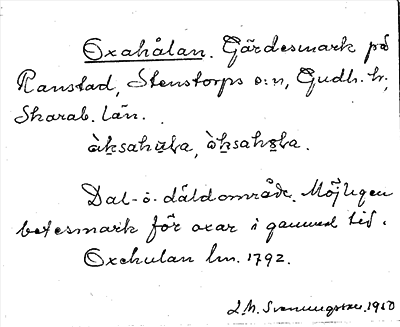 Oxahålan. Gärdesmark på
Ranstad, Stenstorps s:n, Gudh. hr,
Skarab. län.
Dal- o. däldområde. Möjligen
betesmark för oxar i gammal tid.
Oxehulan lm. 1792.
1950